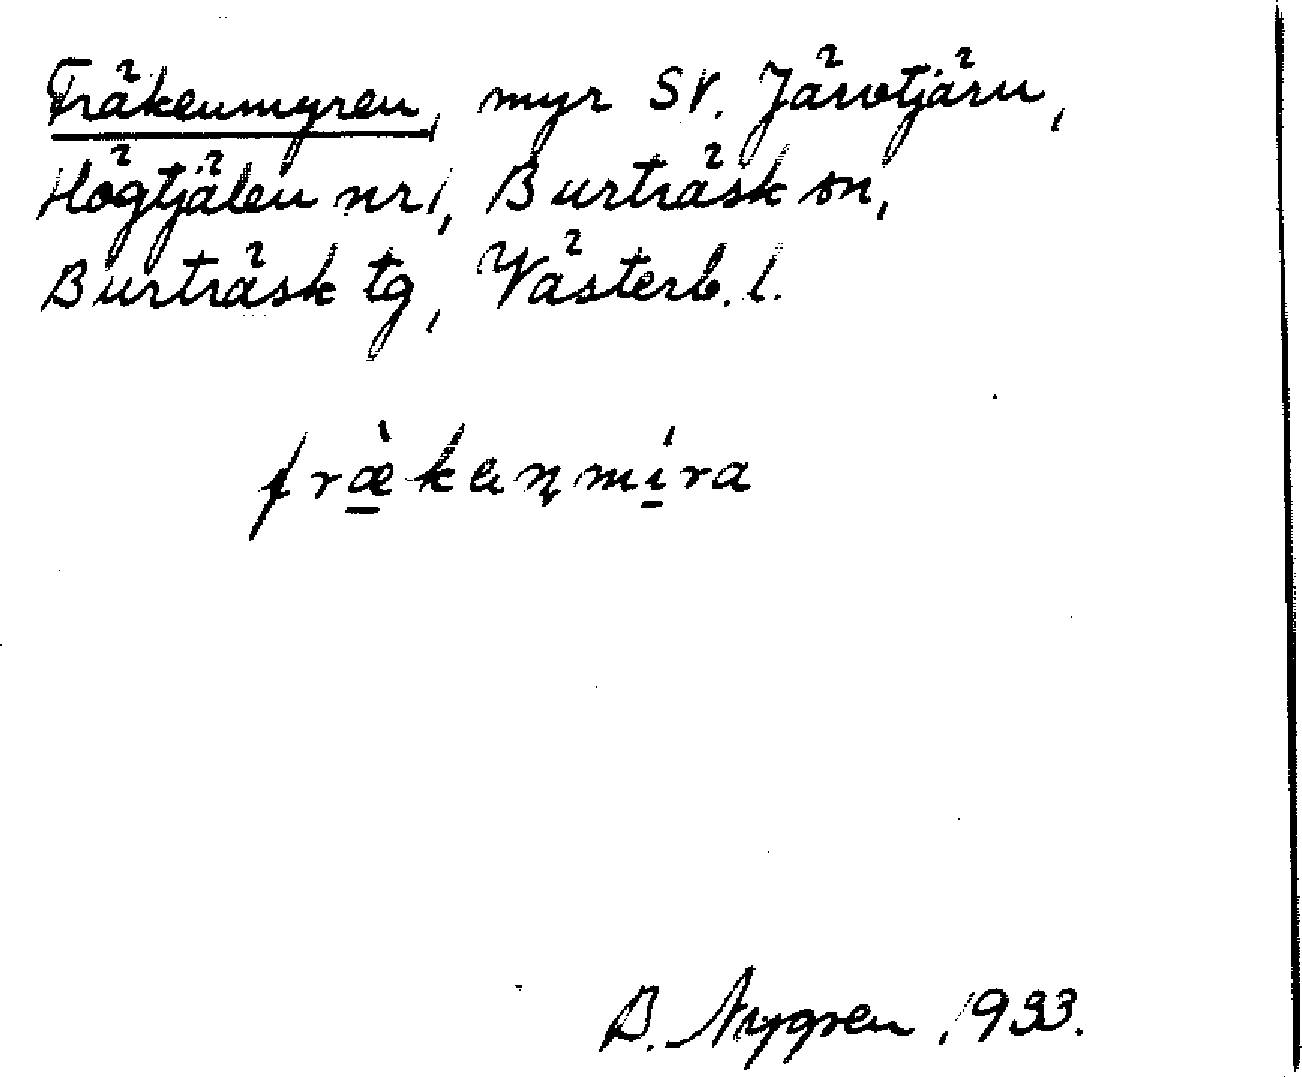 Fräkenmyren, myr SV. Järvtjärn,
Högtjälen nr 1, Burträsk sn,
Burträsk tg, Västerb. l.
fræ̀kenmíra
B. Nygren, 1933.